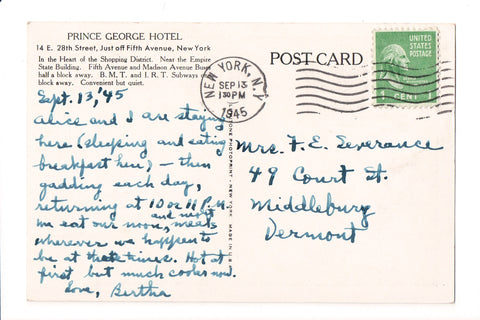 PRINCE GEORGE HOTEL
14 E. 28th Street, Just off Fifth Avenue, New York
In the Heart of the Shopping District. Near the Empire
State Building. Fifth Avenue and Madison Avenue Buses
half a block away. B. M. T. and I. R. T. Subways
block away. Convenient but quiet.
Sept. 13, '45
Alice and I are staying
here (sleeping and eating
breakfast here) — then
gadding each day,
returning at 10 or 11 P.M.
We eat our noon, and night meals
wherever we happen to
be at the time. Hot at
first but much cooler now.
Love, Bertha
POST CARD
NEW YORK, N.Y.
SEP 13
1 30 PM
1945
UNITED STATES
POSTAGE
1 CENT 1
Mrs. F. E. Severance
49 Court St.
Middlebury
Vermont
PHOTOPRINT - NEW YORK
MADE IN U.S.